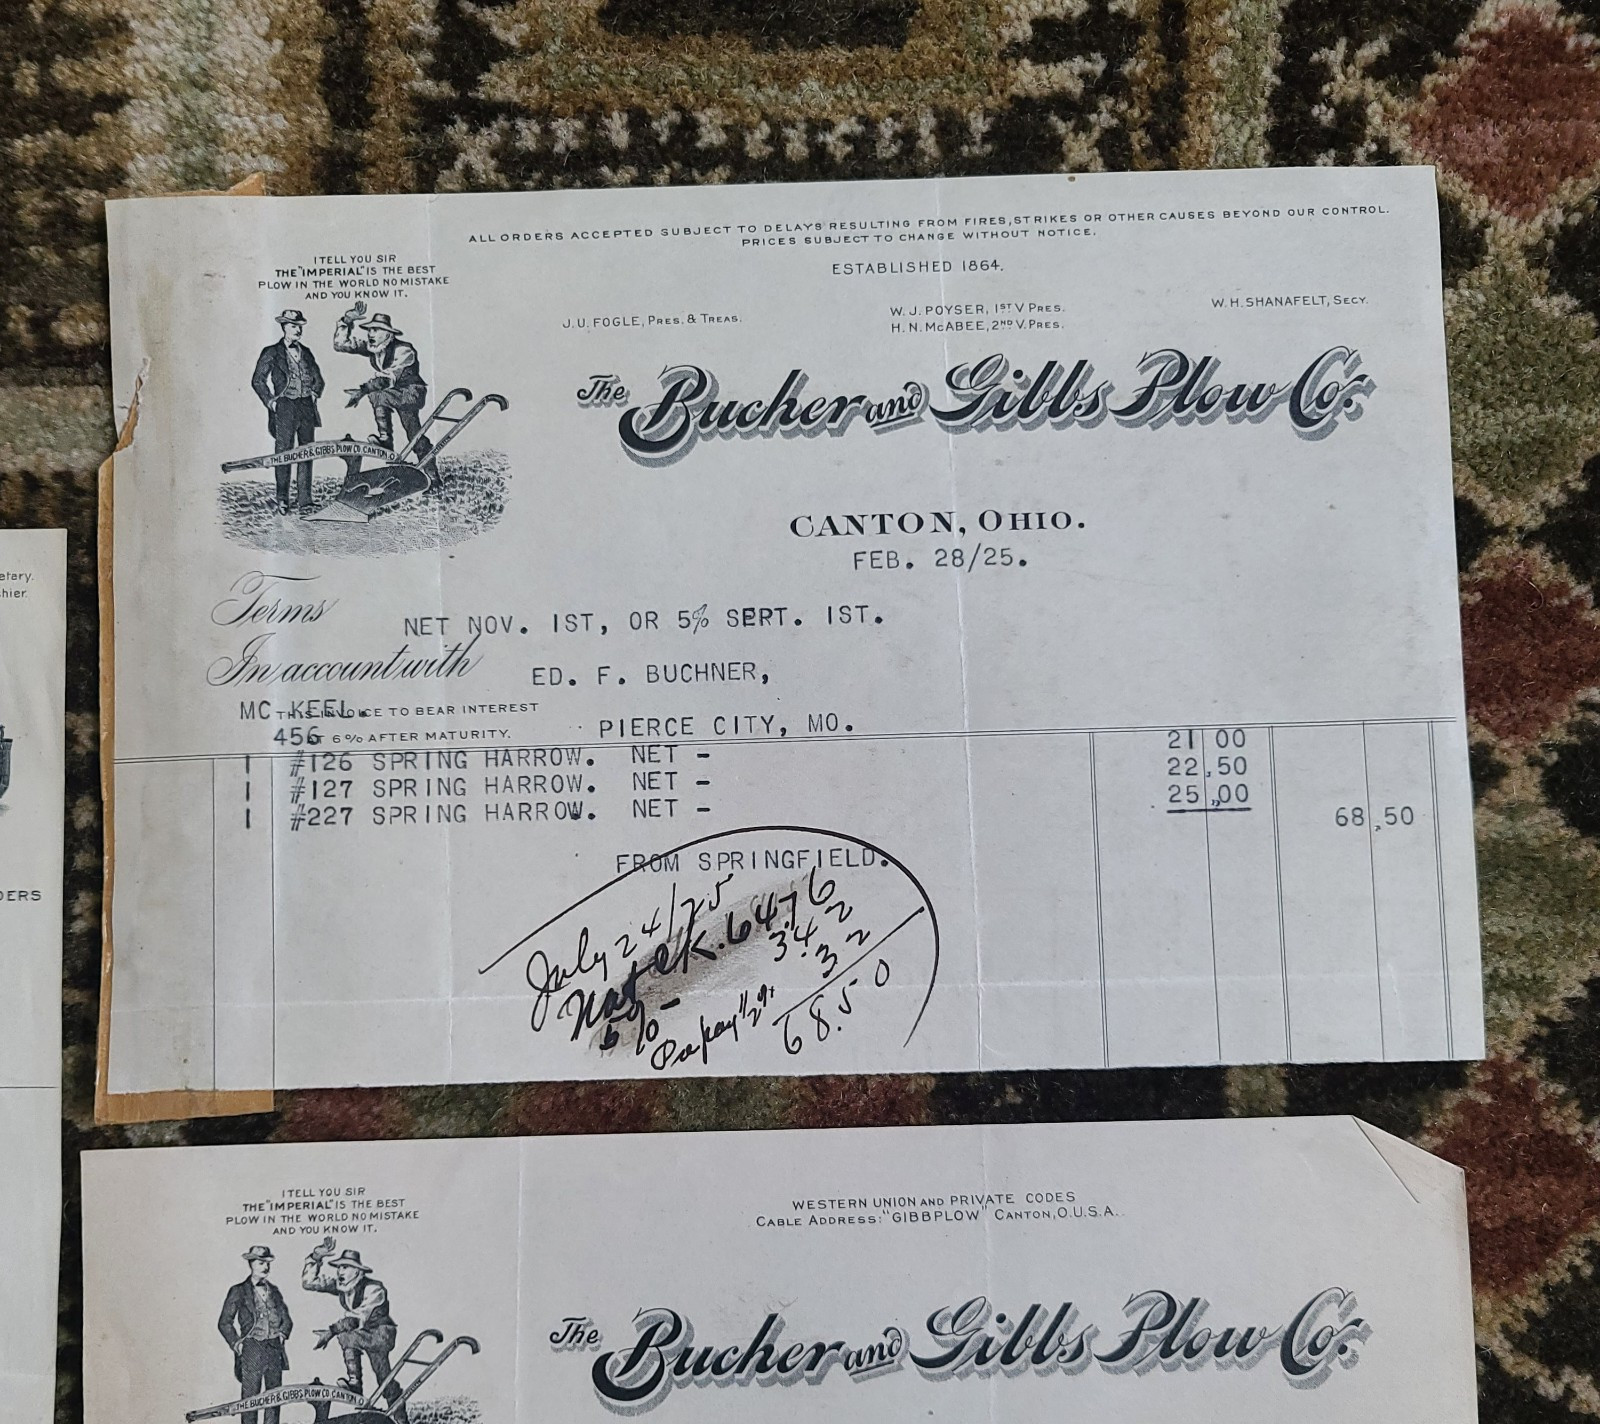 ALL ORDERS ACCEPTED SUBJECT TO DELAYS RESULTING FROM FIRES, STRIKES OR OTHER CAUSES BEYOND OUR CONTROL.
PRICES SUBJECT TO CHANGE WITHOUT NOTICE.
ESTABLISHED 1864.
I TELL YOU SIR
THE "IMPERIAL" IS THE BEST
PLOW IN THE WORLD NO MISTAKE
AND YOU KNOW IT.
J. U. FOGLE, PRES. & TREAS.
W. J. POYSER, 1ST V PRES.
H. N. McABEE, 2ND V. PRES.
W. H. SHANAFELT, SECY.
The Bucher and Gibbs Plow Co.
THE BUCHER & GIBBS PLOW CO. CANTON O.
CANTON, OHIO.
FEB. 28/25.
Terms NET NOV. 1ST, OR 5% SEPT. 1ST.
In account with ED. F. BUCHNER,
MC KEEL.
THIS INVOICE TO BEAR INTEREST
456
AT 6% AFTER MATURITY.
PIERCE CITY, MO.
1 #126 SPRING HARROW. NET - 21 00
1 #127 SPRING HARROW. NET - 22.50
1 #227 SPRING HARROW. NET - 25.00 68.50
FROM SPRINGFIELD.
July 24/25
Nat ck. 64.76
5% - 3.42
32
68.50
etary.
hier.
DERS
I TELL YOU SIR
THE "IMPERIAL" IS THE BEST
PLOW IN THE WORLD NO MISTAKE
AND YOU KNOW IT.
WESTERN UNION AND PRIVATE CODES
CABLE ADDRESS: "GIBBPLOW" CANTON, O. U.S.A.
The Bucher and Gibbs Plow Co.
THE BUCHER & GIBBS PLOW CO. CANTON O.